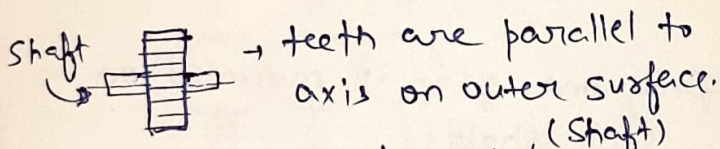 Shaft
→ teeth are parallel to
axis on outer surface.
(Shaft)